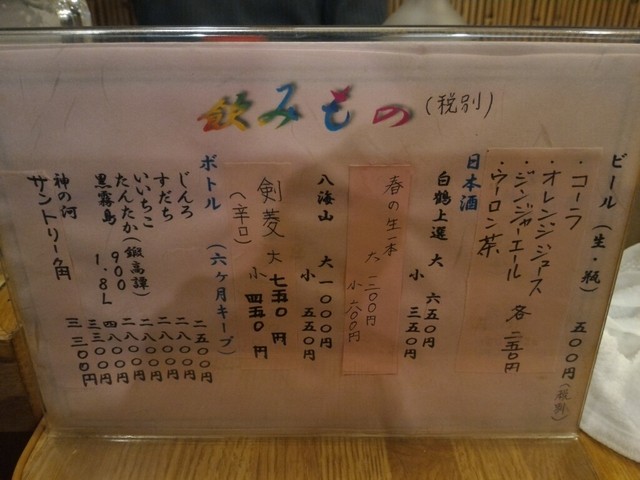 飲みもの (税別)
ビール (生・瓶) 五〇〇円 (税別)
・コーラ
・オレンジジュース
・ジンジャーエール
・ウーロン茶 各 二五〇円
日本酒
白鶴上選 大 六五〇円
小 三五〇円
春の生一本 大 一二〇〇円
小 六〇〇円
八海山 大 一〇〇〇円
小 五五〇円
剣菱 大 七五〇円
(辛口) 小 四五〇円
ボトル (六ヶ月キープ)
じんろ 二五〇〇円
すだち 二八〇〇円
いいちこ 二八〇〇円
たんたか(鍛高譚) 二八〇〇円
黒霧島 900 二八〇〇円
1.8L 四八〇〇円
神の河 三三〇〇円
サントリー角 三三〇〇円